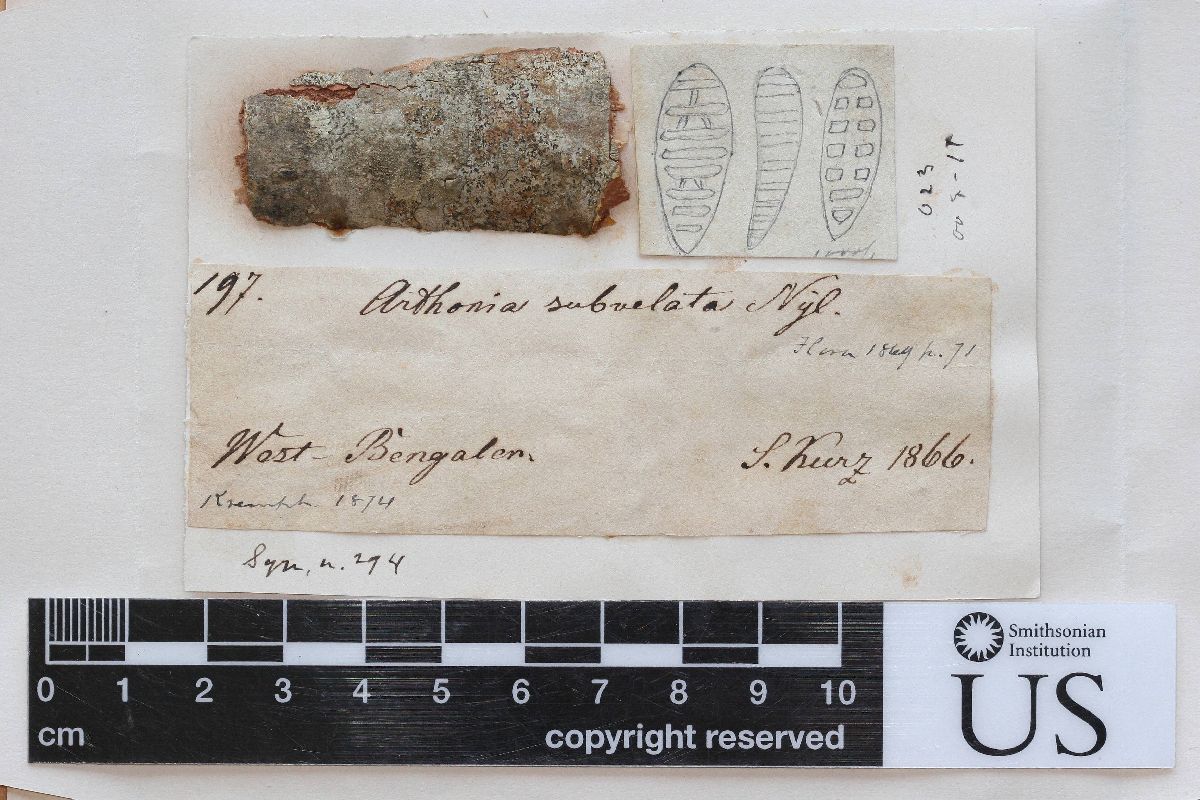 023
197.
Arthonia subvelata Nyl.
Flora 1869 p. 71
West-Bengalen.
S. Kurz 1866.
Krempelh. 1874
Syn. n. 294
0 1 2 3 4 5 6 7 8 9 10
cm
copyright reserved
Smithsonian
Institution
US